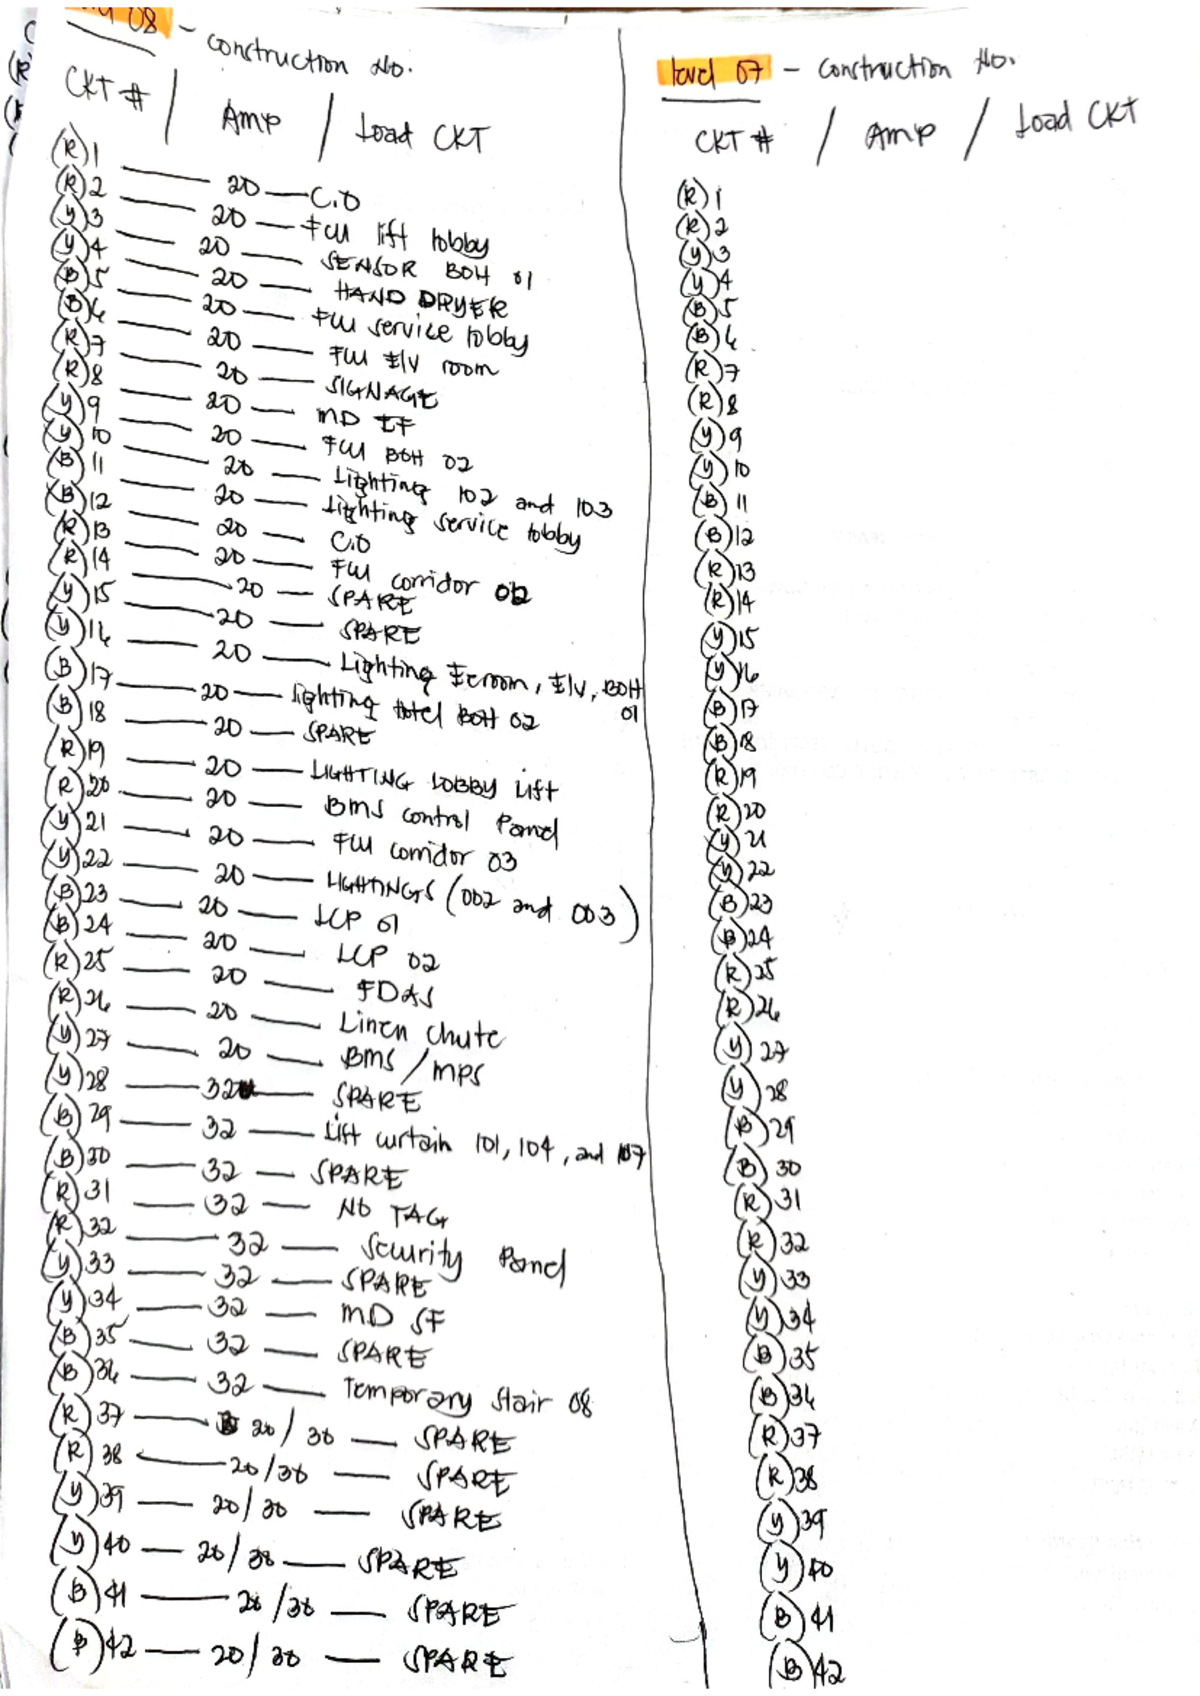 08 - construction No.
CKT # / Amp / Load CKT
(R) 1 — 20 — C.O
(R) 2 — 20 — FCU lift lobby
(Y) 3 — 20 — SENSOR BOH 01
(Y) 4 — 20 — HAND DRYER
(B) 5 — 20 — FCU service lobby
(B) 6 — 20 — FCU E/V room
(R) 7 — 20 — SIGNAGE
(R) 8 — 20 — MD EF
(Y) 9 — 20 — FCU BOH 02
(Y) 10 — 20 — Lighting 102 and 103
(B) 11 — 20 — Lighting service lobby
(B) 12 — 20 — C.O
(R) 13 — 20 — FCU corridor 02
(R) 14 — 20 — SPARE
(Y) 15 — 20 — SPARE
(Y) 16 — 20 — Lighting Ecroom, E/V, BOH 01
(B) 17 — 20 — lighting hotel BOH 02
(B) 18 — 20 — SPARE
(R) 19 — 20 — LIGHTING LOBBY Lift
(R) 20 — 20 — BMS control Panel
(Y) 21 — 20 — FCU corridor 03
(Y) 22 — 20 — LIGHTINGS (002 and 003)
(B) 23 — 20 — LCP 01
(B) 24 — 20 — LCP 02
(R) 25 — 20 — FDAS
(R) 26 — 20 — Linen chute
(Y) 27 — 20 — BMS / MPS
(Y) 28 — 32 — SPARE
(B) 29 — 32 — Lift curtain 101, 104, and 107
(B) 30 — 32 — SPARE
(R) 31 — 32 — NO TAG
(R) 32 — 32 — Security Panel
(Y) 33 — 32 — SPARE
(Y) 34 — 32 — MD SF
(B) 35 — 32 — SPARE
(B) 36 — 32 — Temporary Stair 08
(R) 37 — 20/30 — SPARE
(R) 38 — 20/30 — SPARE
(Y) 39 — 20/30 — SPARE
(Y) 40 — 20/30 — SPARE
(B) 41 — 20/30 — SPARE
(B) 42 — 20/30 — SPARE
level 07 - construction No.
CKT # / Amp / Load CKT
(R) 1
(R) 2
(Y) 3
(Y) 4
(B) 5
(B) 6
(R) 7
(R) 8
(Y) 9
(Y) 10
(B) 11
(B) 12
(R) 13
(R) 14
(Y) 15
(Y) 16
(B) 17
(B) 18
(R) 19
(R) 20
(Y) 21
(Y) 22
(B) 23
(B) 24
(R) 25
(R) 26
(Y) 27
(Y) 28
(B) 29
(B) 30
(R) 31
(R) 32
(Y) 33
(Y) 34
(B) 35
(B) 36
(R) 37
(R) 38
(Y) 39
(Y) 40
(B) 41
(B) 42